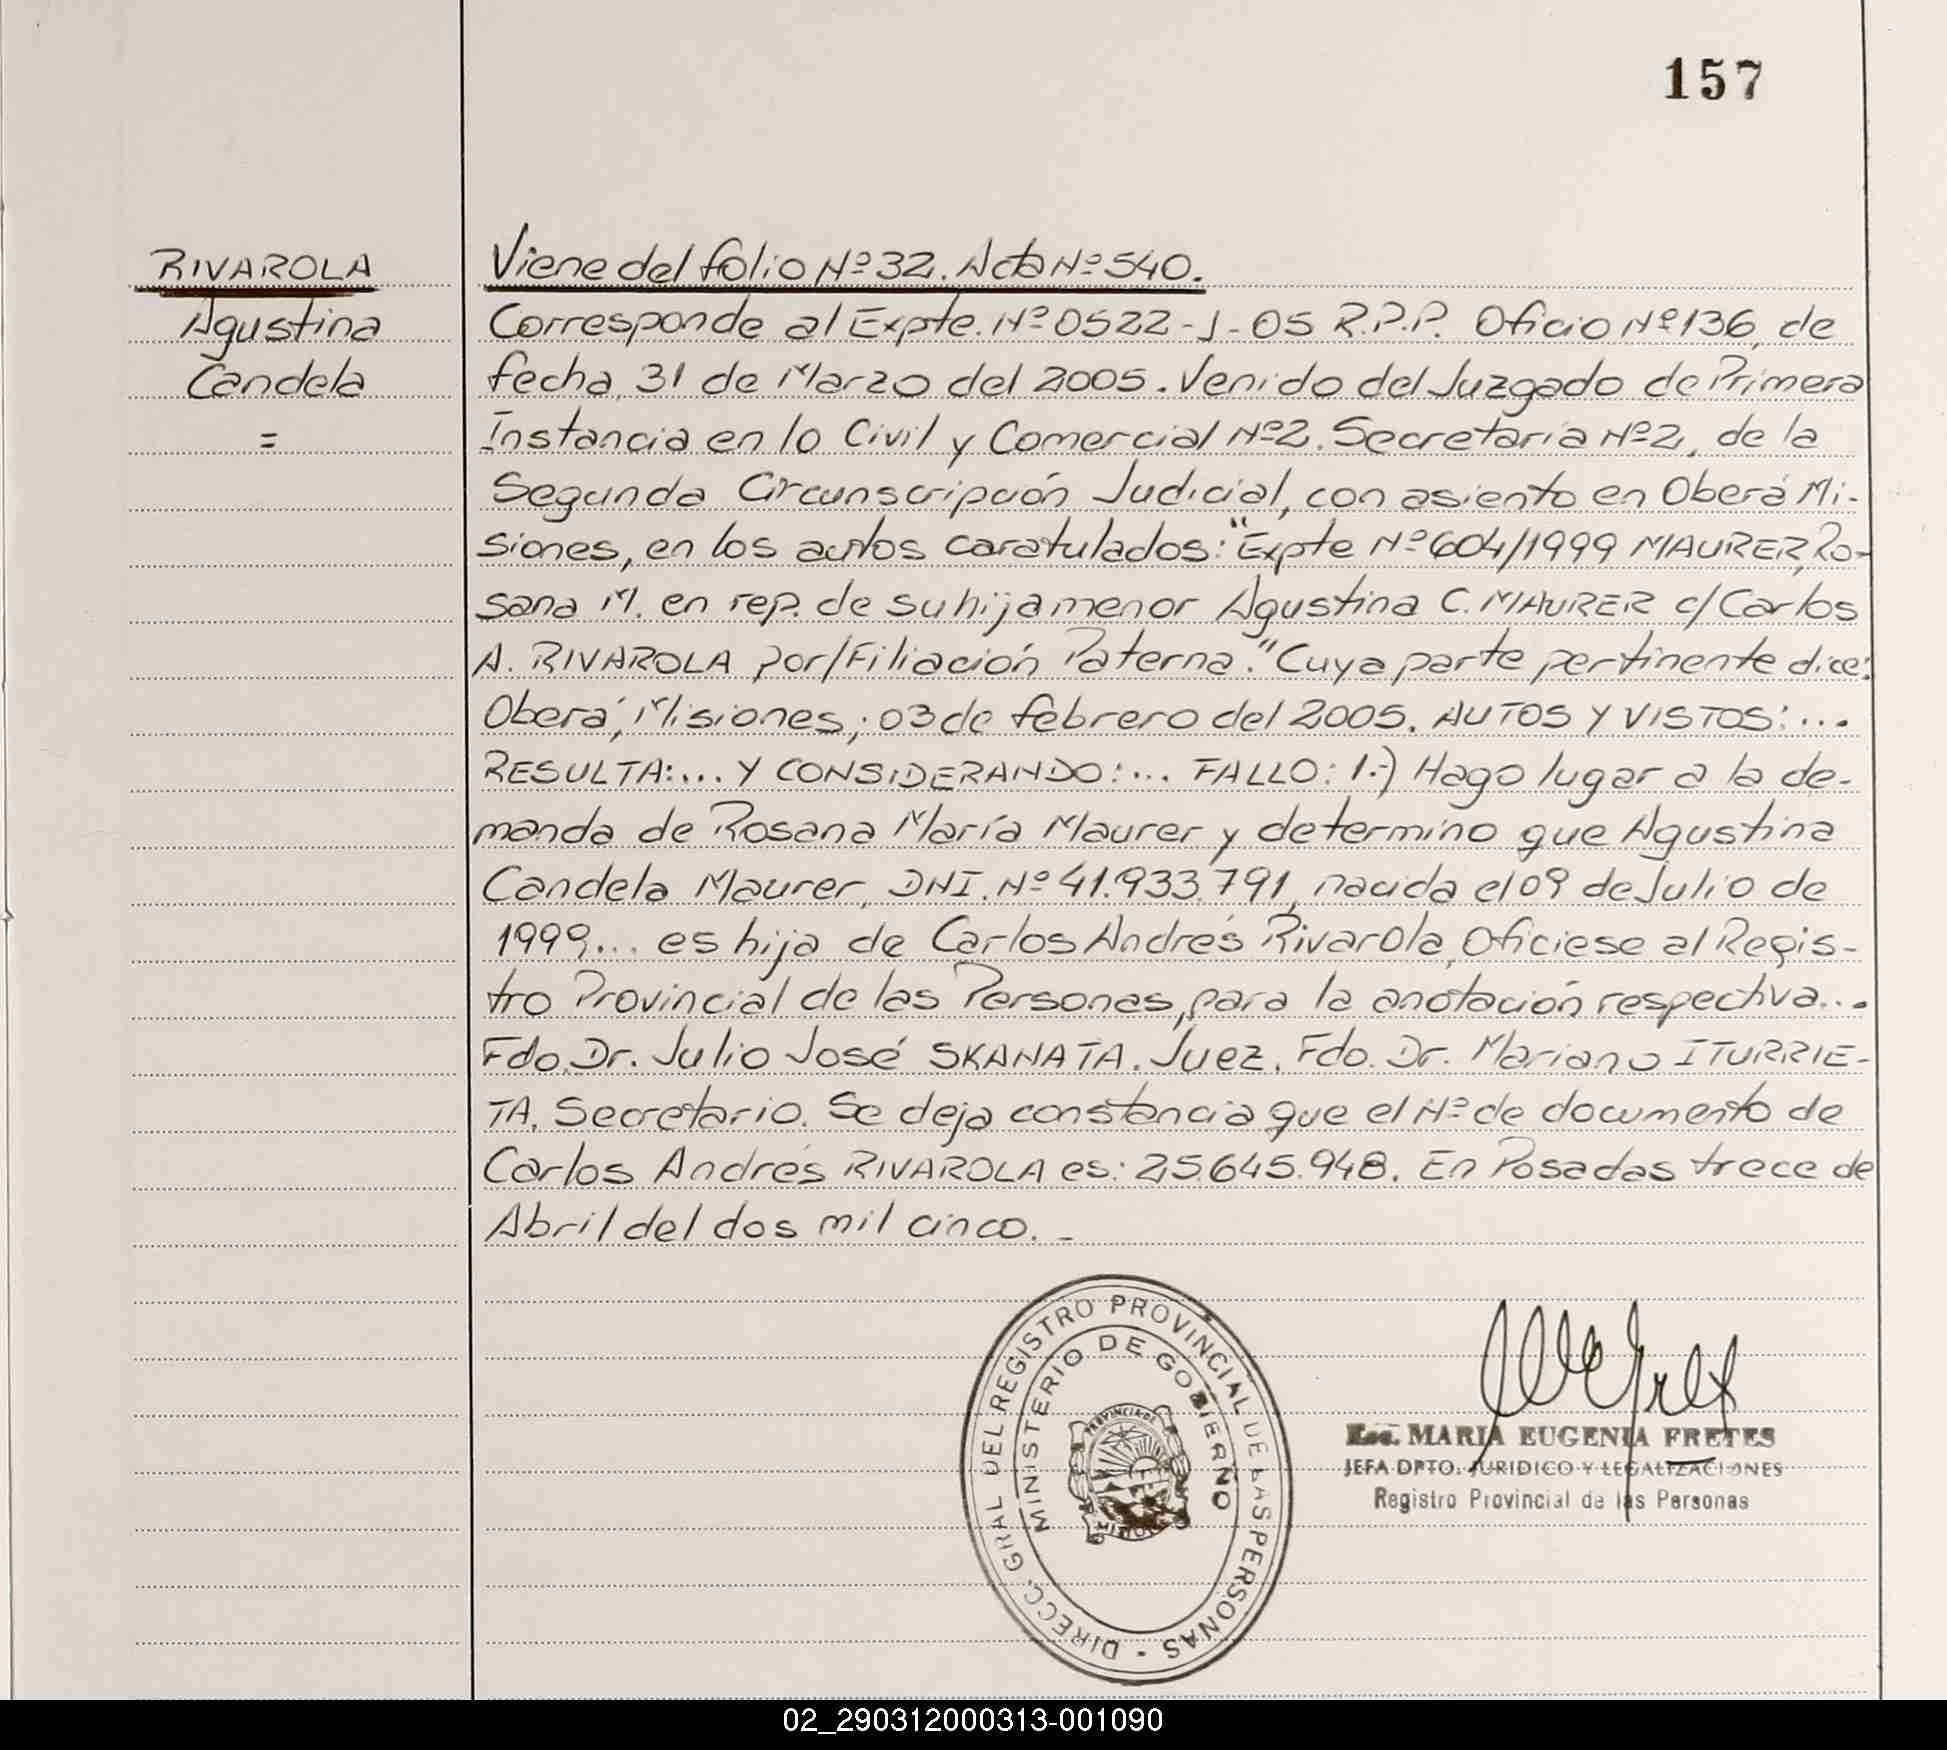 157
RIVAROLA
Agustina
Candela
=
Viene del folio Nº 32. Acta Nº 540.
Corresponde al Expte. Nº 0522-J-05 R.P.P. Oficio Nº 136, de
fecha, 31 de Marzo del 2005. Venido del Juzgado de Primera
Instancia en lo Civil y Comercial Nº 2. Secretaría Nº 2, de la
Segunda Circunscripción Judicial, con asiento en Oberá Mi-
siones, en los autos caratulados: "Expte Nº 604/1999 MAURER, Ro-
sana M. en rep. de su hija menor Agustina C. MAURER c/ Carlos
A. RIVAROLA por/Filiación Paterna." Cuya parte pertinente dice:
Oberá, Misiones, 03 de febrero del 2005. AUTOS Y VISTOS:...
RESULTA:... Y CONSIDERANDO:... FALLO: 1.-) Hago lugar a la de-
manda de Rosana María Maurer y determino que Agustina
Candela Maurer, DNI. Nº 41.933.791, nacida el 09 de Julio de
1999,... es hija de Carlos Andrés Rivarola, Ofíciese al Regis-
tro Provincial de las Personas, para la anotación respectiva...
Fdo. Dr. Julio José SKANATA. Juez. Fdo. Dr. Mariano ITURRIE-
TA. Secretario. Se deja constancia que el Nº de documento de
Carlos Andrés RIVAROLA es: 25.645.948. En Posadas trece de
Abril del dos mil cinco. -
DIRECC. GRAL DEL REGISTRO PROVINCIAL DE LAS PERSONAS -
MINISTERIO DE GOBIERNO
PROVINCIA DE
MISIONES
Esc. MARIA EUGENIA FRETES
JEFA DPTO. JURIDICO Y LEGALIZACIONES
Registro Provincial de las Personas
02_290312000313-001090